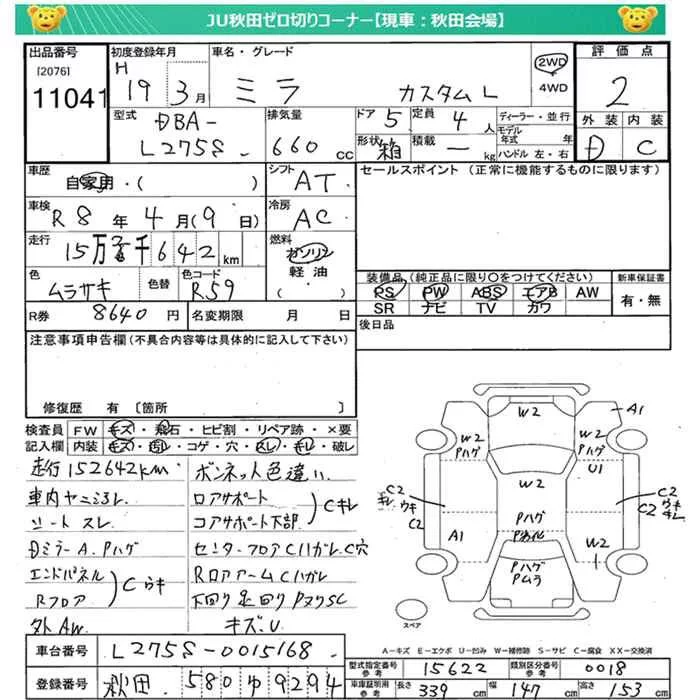 JU秋田ゼロ切りコーナー【現車：秋田会場】
出品番号
[2076]
11041
初度登録年月
H 19 3月
車名・グレード
ミラ カスタム L
2WD
4WD
評価点
2
外装 内装
D C
型式
DBA-
L275S
排気量
660 cc
ドア 5
定員 4 人
形状 箱
積載 ー kg
ディーラー・並行
モデル年式 年
ハンドル 左・右
車歴
自家用・( )
シフト
AT
車検
R8年4月(9日)
冷房
AC
走行
15万2千642km
燃料
ガソリン
軽油
( )
色
ムラサキ
色替
色コード
R59
R券 8640円
名変期限 月 日
セールスポイント (正常に機能するものに限ります)
装備品(純正品に限り○をつけてください)
PS PW ABS エアB AW
SR ナビ TV カワ
新車保証書
有・無
後日品
注意事項申告欄(不具合内容等は具体的に記入して下さい)
修復歴 有 〔箇所 〕
検査員記入欄
FW キズ・飛石・ヒビ割・リペア跡・×要
内装 キズ・汚れ・コゲ・穴・スレ・キレ・破レ
走行152642km
車内ヤニヨゴレ
シートスレ
DミラーA.Pハゲ
エンドパネル
Rフロア
Cウキ
外AW
ボンネット色違い
ロアサポート
コアサポート下部
Cキレ
センターフロアCハガレ.C穴
RロアアームCハガレ
下回り足回りPヌリSC
キズ.U
W2
A1
W2
Pハゲ
W2
Pハゲ
U1
W2
C2
キレ ウキ
C2
C2
C2 ウキ
キレ
Pハゲ
A1
W2
Pハゲ
Pムラ
スペア
A-キズ E-エクボ U-凹み W-補修跡 S-サビ C-腐食 XX-交換済
車台番号 L275S-0015168
登録番号 秋田 580 ゆ 9294
型式指定参考 15622
類別区分番号参考 0018
車両寸法参考
長さ 339 cm
幅 147 cm
高さ 153 cm